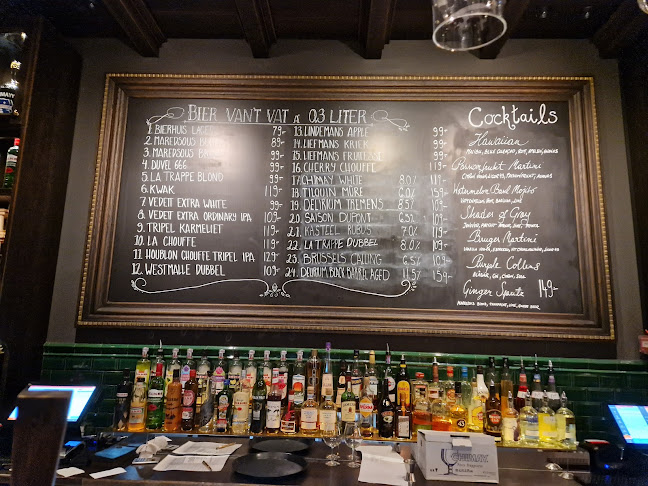 BIER VAN'T VAT à 0,3 LITER
1. BIERHUIS LAGER 79-
2. MAREDSOUS 89-
3. MAREDSOUS 99-
4. DUVEL 666 99-
5. LA TRAPPE BLOND 99-
6. KWAK 119-
7. VEDETT EXTRA WHITE 99-
8. VEDETT EXTRA ORDINARY IPA 109-
9. TRIPEL KARMELIET 119-
10. LA CHOUFFE 109-
11. HOUBLON CHOUFFE TRIPEL IPA 129-
12. WESTMALLE DUBBEL 109-
13. LINDEMANS APPLE 99-
14. LIEFMANS KRIEK 99-
15. LIEFMANS FRUITESSE 99-
16. CHERRY CHOUFFE 119-
17. CHIMAY WHITE 8.0% 119-
18. TILQUIN MÛRE 159-
19. DELIRIUM TREMENS 8.5% 109-
20. SAISON DUPONT 6.5% 109-
21. KASTEEL RUBUS 7.0% 119-
22. LA TRAPPE DUBBEL 109-
23. BRUSSELS CALLING 6.5% 109-
24. DELIRIUM BLACK BARREL AGED 11.5% 159-
Cocktails
Hawaiian
Passionfruit Martini
Watermelon Basil Mojito
Shades of Gray
Bruger Martini
Purple Collins
Ginger Spritz 149-
CHIMAY